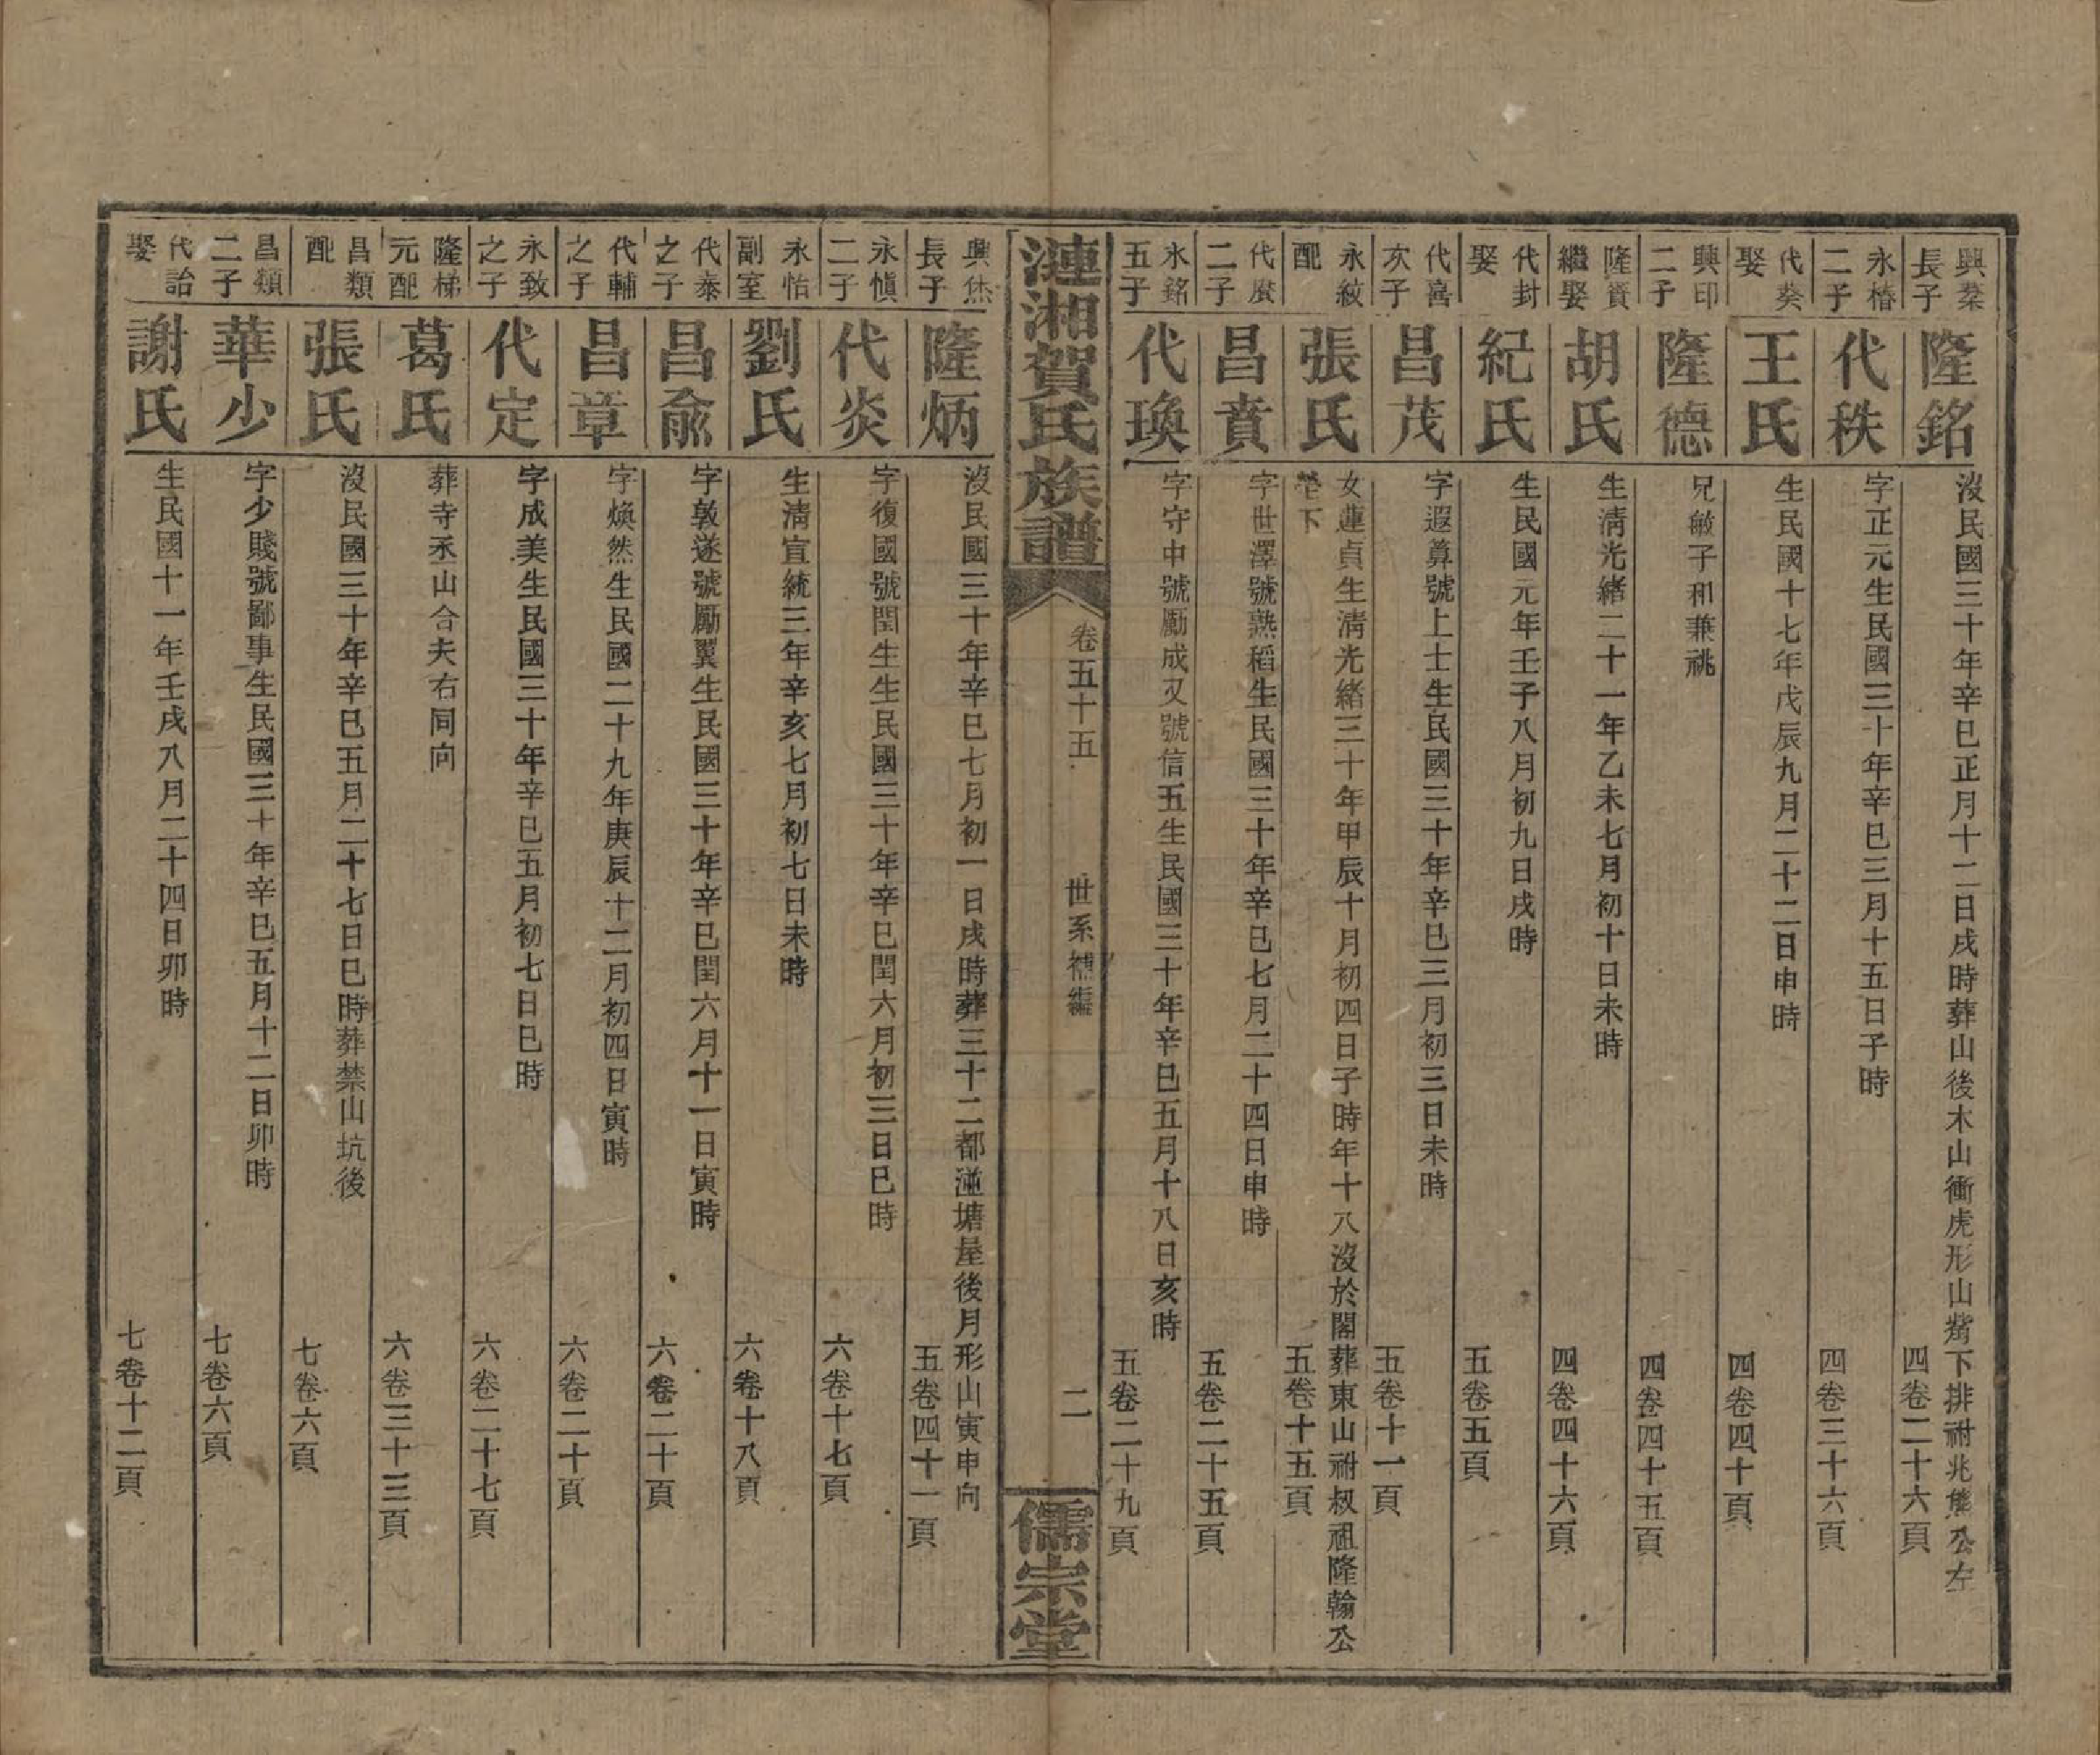 興棻長子
隆銘
沒民國三十年辛巳正月十二日戌時葬山後木山衝虎形山塋下排祔兆熊公左
四卷二十六頁
永椿二子
代秩
字正元生民國三十年辛巳三月十五日子時
四卷三十六頁
代葵娶
王氏
生民國十七年戊辰九月二十二日申時
四卷四十頁
興印二子
隆德
兄敏子和兼祧
四卷四十五頁
隆賓繼娶
胡氏
生淸光緒二十一年乙未七月初十日未時
四卷四十六頁
代封娶
紀氏
生民國元年壬子八月初九日戌時
五卷五頁
代喜次子
昌茂
字遐算號上士生民國三十年辛巳三月初三日未時
五卷十一頁
永紋配
張氏
女蓮貞生淸光緒三十年甲辰十月初四日子時年十八沒於閣葬東山祔叔祖隆翰公塋下
五卷十五頁
代賡二子
昌賁
字世澤號熟稻生民國三十年辛巳七月二十四日申時
五卷二十五頁
永銘五子
代瑍
字守中號勵成又號信五生民國三十年辛巳五月十八日亥時
五卷二十九頁
漣湘賀氏族譜
卷五十五
世系補編
二
儒宗堂
興烋長子
隆炳
沒民國三十年辛巳七月初一日戌時葬三十二都漨塘屋後月形山寅申向
五卷四十一頁
永愼二子
代炎
字復國號閏生生民國三十年辛巳閏六月初三日巳時
六卷十七頁
永怡副室
劉氏
生淸宣統三年辛亥七月初七日未時
六卷十八頁
代泰之子
昌兪
字敦遂號勵翼生民國三十年辛巳閏六月十一日寅時
六卷二十頁
代輔之子
昌章
字煥然生民國二十九年庚辰十二月初四日寅時
六卷二十頁
永致之子
代定
字成美生民國三十年辛巳五月初七日巳時
六卷二十七頁
隆梯元配
葛氏
葬寺丞山合夫右同向
六卷三十三頁
昌類配
張氏
沒民國三十年辛巳五月二十七日巳時葬禁山坑後
七卷六頁
昌類二子
華少
字少賤號鄙事生民國三十年辛巳五月十二日卯時
七卷六頁
代詒娶
謝氏
生民國十一年壬戌八月二十四日卯時
七卷十二頁